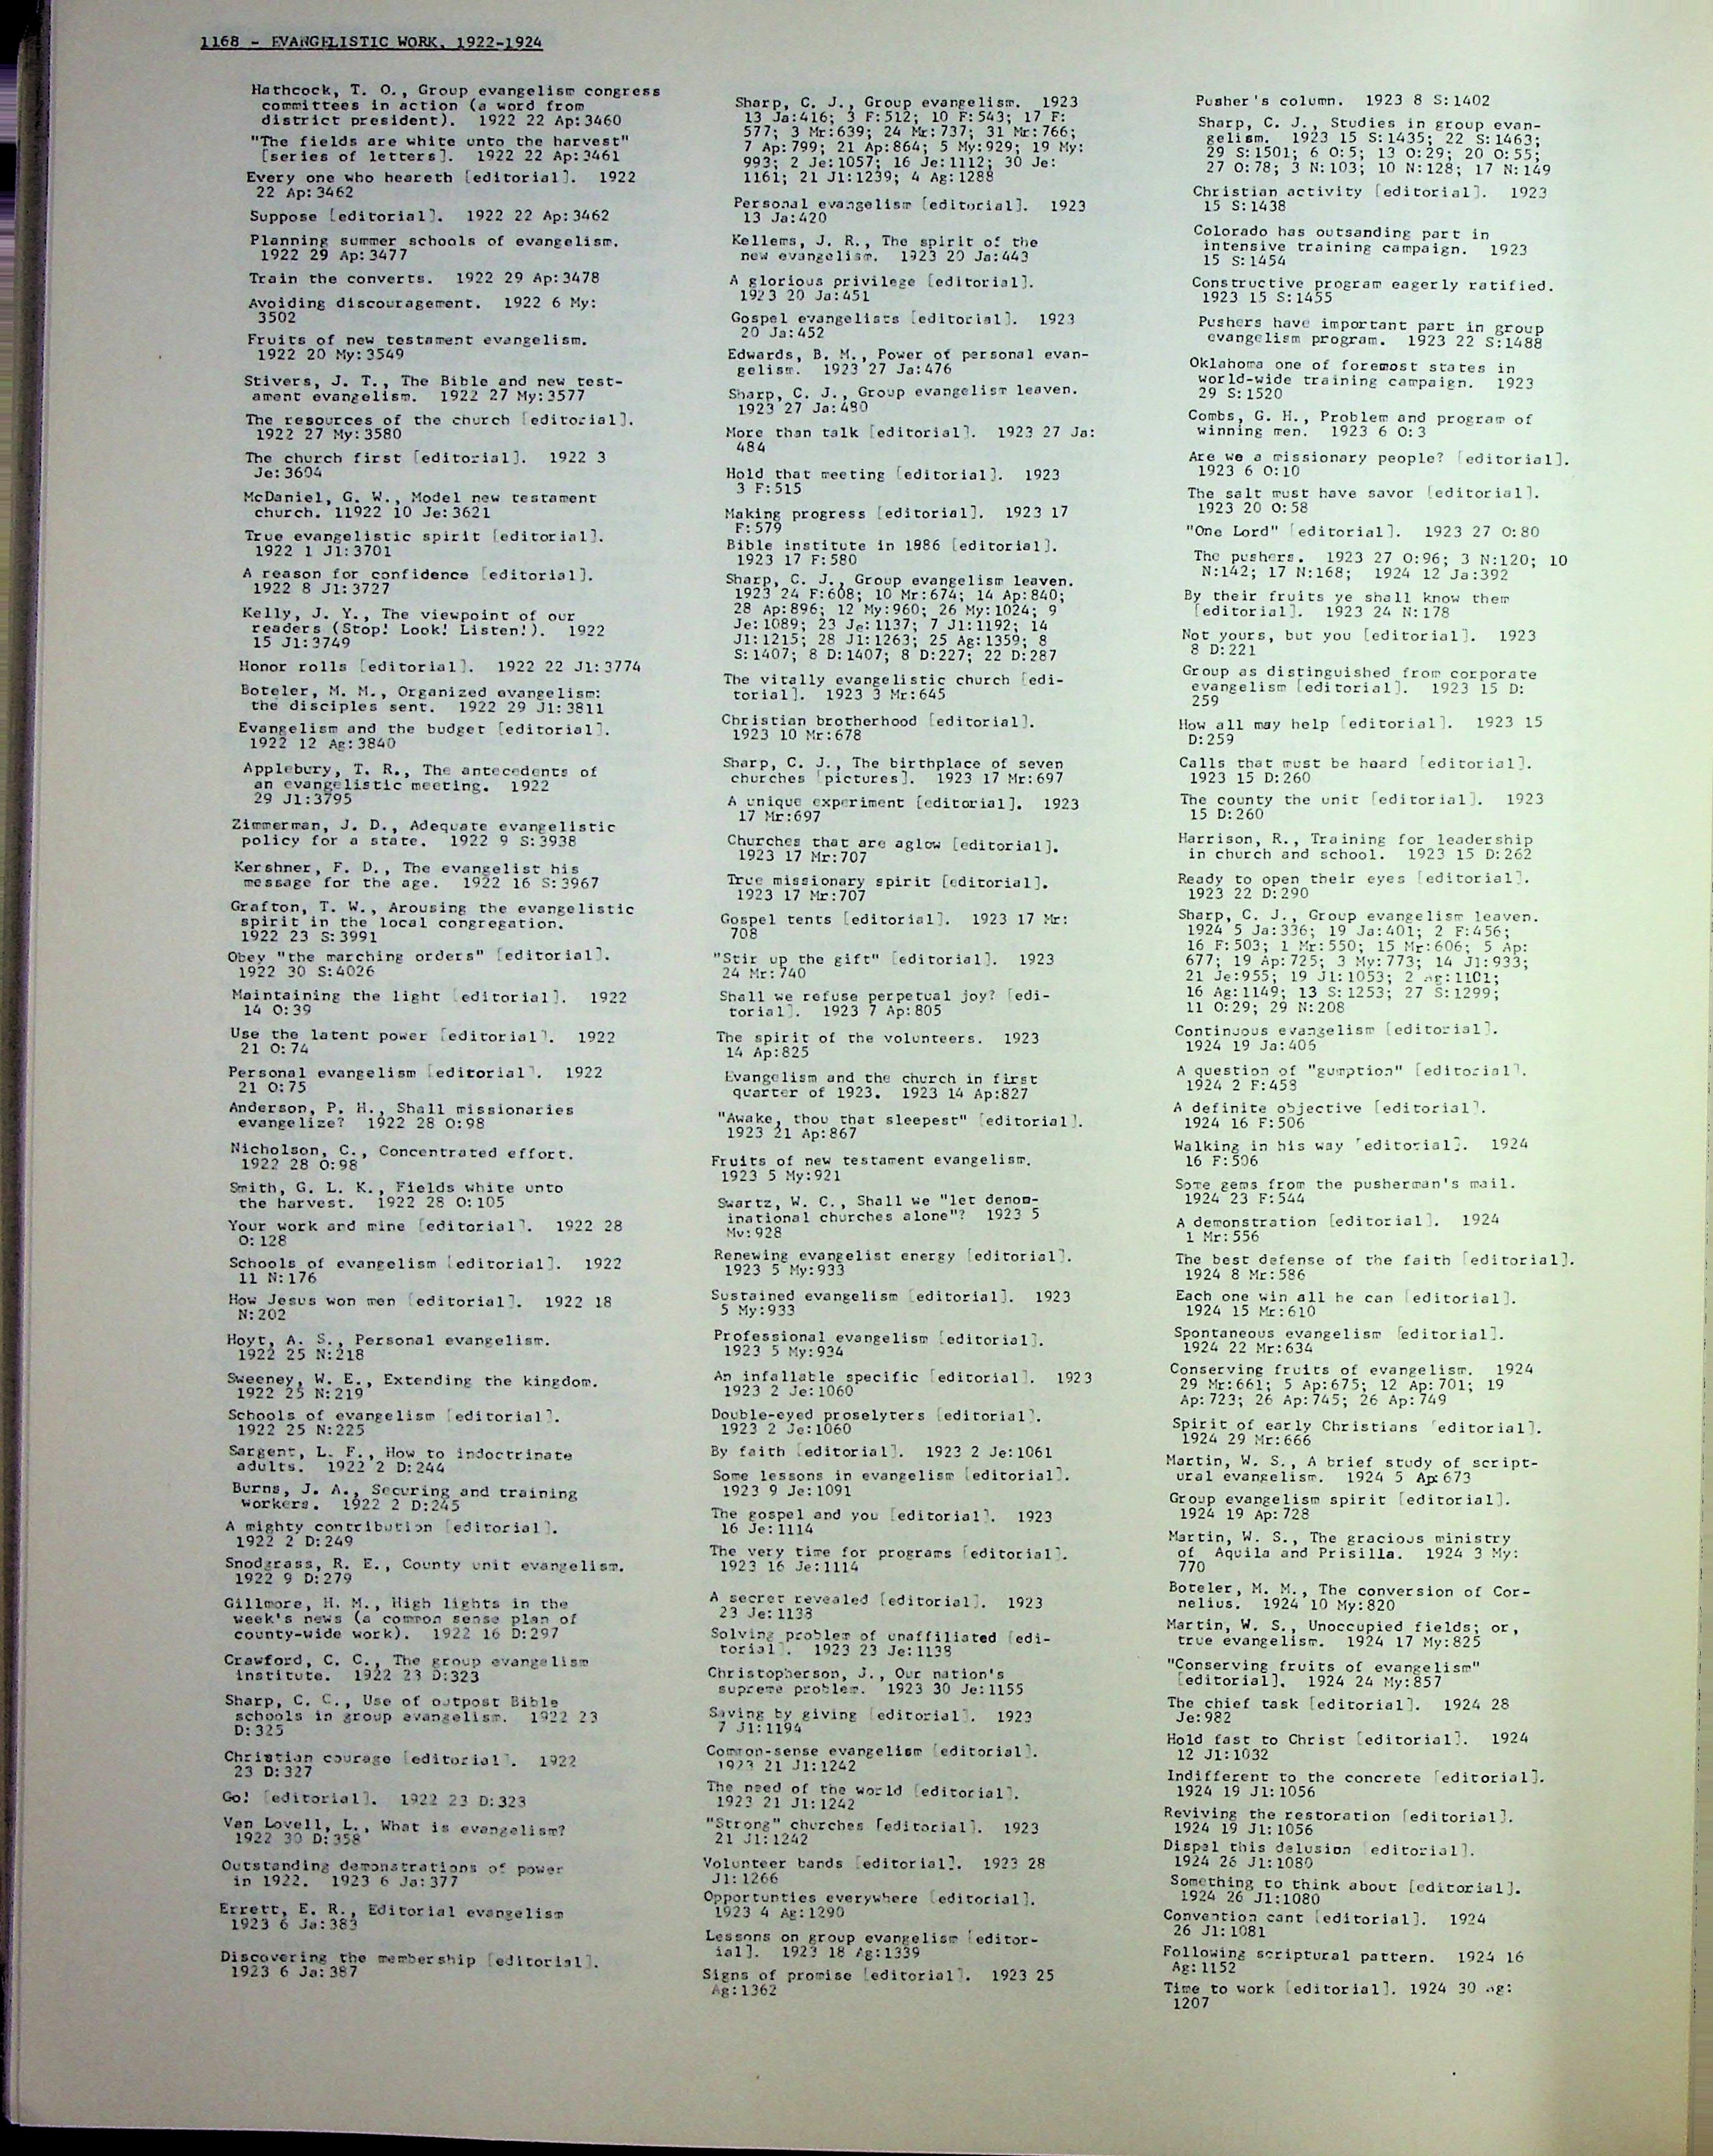 1168 - EVANGELISTIC WORK, 1922-1924
Hathcock, T. O., Group evangelism congress
committees in action (a word from
district president). 1922 22 Ap:3460
"The fields are white unto the harvest"
[series of letters]. 1922 22 Ap:3461
Every one who heareth [editorial]. 1922
22 Ap:3462
Suppose [editorial]. 1922 22 Ap:3462
Planning summer schools of evangelism.
1922 29 Ap:3477
Train the converts. 1922 29 Ap:3478
Avoiding discouragement. 1922 6 My:
3502
Fruits of new testament evangelism.
1922 20 My:3549
Stivers, J. T., The Bible and new test-
ament evangelism. 1922 27 My:3577
The resources of the church [editorial].
1922 27 My:3580
The church first [editorial]. 1922 3
Je:3604
McDaniel, G. W., Model new testament
church. 11922 10 Je:3621
True evangelistic spirit [editorial].
1922 1 Jl:3701
A reason for confidence [editorial].
1922 8 Jl:3727
Kelly, J. Y., The viewpoint of our
readers (Stop! Look! Listen!). 1922
15 Jl:3749
Honor rolls [editorial]. 1922 22 Jl:3774
Boteler, M. M., Organized evangelism:
the disciples sent. 1922 29 Jl:3811
Evangelism and the budget [editorial].
1922 12 Ag:3840
Applebury, T. R., The antecedents of
an evangelistic meeting. 1922
29 Jl:3795
Zimmerman, J. D., Adequate evangelistic
policy for a state. 1922 9 S:3938
Kershner, F. D., The evangelist his
message for the age. 1922 16 S:3967
Grafton, T. W., Arousing the evangelistic
spirit in the local congregation.
1922 23 S:3991
Obey "the marching orders" [editorial].
1922 30 S:4026
Maintaining the light [editorial]. 1922
14 O:39
Use the latent power [editorial]. 1922
21 O:74
Personal evangelism [editorial]. 1922
21 O:75
Anderson, P. H., Shall missionaries
evangelize? 1922 28 O:98
Nicholson, C., Concentrated effort.
1922 28 O:98
Smith, G. L. K., Fields white unto
the harvest. 1922 28 O:105
Your work and mine [editorial]. 1922 28
O:128
Schools of evangelism [editorial]. 1922
11 N:176
How Jesus won men [editorial]. 1922 18
N:202
Hoyt, A. S., Personal evangelism.
1922 25 N:218
Sweeney, W. E., Extending the kingdom.
1922 25 N:219
Schools of evangelism [editorial].
1922 25 N:225
Sargent, L. F., How to indoctrinate
adults. 1922 2 D:244
Burns, J. A., Securing and training
workers. 1922 2 D:245
A mighty contribution [editorial].
1922 2 D:249
Snodgrass, R. E., County unit evangelism.
1922 9 D:279
Gillmore, H. M., High lights in the
week's news (a common sense plan of
county-wide work). 1922 16 D:297
Crawford, C. C., The group evangelism
institute. 1922 23 D:323
Sharp, C. C., Use of outpost Bible
schools in group evangelism. 1922 23
D:325
Christian courage [editorial]. 1922
23 D:327
Go! [editorial]. 1922 23 D:323
Van Lovell, L., What is evangelism?
1922 30 D:358
Outstanding demonstrations of power
in 1922. 1923 6 Ja:377
Errett, E. R., Editorial evangelism
1923 6 Ja:383
Discovering the membership [editorial].
1923 6 Ja:387
Sharp, C. J., Group evangelism. 1923
13 Ja:416; 3 F:512; 10 F:543; 17 F:
577; 3 Mr:639; 24 Mr:737; 31 Mr:766;
7 Ap:799; 21 Ap:864; 5 My:929; 19 My:
993; 2 Je:1057; 16 Je:1112; 30 Je:
1161; 21 Jl:1239; 4 Ag:1288
Personal evangelism [editorial]. 1923
13 Ja:420
Kellems, J. R., The spirit of the
new evangelism. 1923 20 Ja:443
A glorious privilege [editorial].
1923 20 Ja:451
Gospel evangelists [editorial]. 1923
20 Ja:452
Edwards, B. M., Power of personal evan-
gelism. 1923 27 Ja:476
Sharp, C. J., Group evangelism leaven.
1923 27 Ja:480
More than talk [editorial]. 1923 27 Ja:
484
Hold that meeting [editorial]. 1923
3 F:515
Making progress [editorial]. 1923 17
F:579
Bible institute in 1886 [editorial].
1923 17 F:580
Sharp, C. J., Group evangelism leaven.
1923 24 F:608; 10 Mr:674; 14 Ap:840;
28 Ap:896; 12 My:960; 26 My:1024; 9
Je:1089; 23 Je:1137; 7 Jl:1192; 14
Jl:1215; 28 Jl:1263; 25 Ag:1359; 8
S:1407; 8 D:1407; 8 D:227; 22 D:287
The vitally evangelistic church [edi-
torial]. 1923 3 Mr:645
Christian brotherhood [editorial].
1923 10 Mr:678
Sharp, C. J., The birthplace of seven
churches [pictures]. 1923 17 Mr:697
A unique experiment [editorial]. 1923
17 Mr:697
Churches that are aglow [editorial].
1923 17 Mr:707
True missionary spirit [editorial].
1923 17 Mr:707
Gospel tents [editorial]. 1923 17 Mr:
708
"Stir up the gift" [editorial]. 1923
24 Mr:740
Shall we refuse perpetual joy? [edi-
torial]. 1923 7 Ap:805
The spirit of the volunteers. 1923
14 Ap:825
Evangelism and the church in first
quarter of 1923. 1923 14 Ap:827
"Awake, thou that sleepest" [editorial].
1923 21 Ap:867
Fruits of new testament evangelism.
1923 5 My:921
Swartz, W. C., Shall we "let denom-
inational churches alone"? 1923 5
My:928
Renewing evangelist energy [editorial].
1923 5 My:933
Sustained evangelism [editorial]. 1923
5 My:933
Professional evangelism [editorial].
1923 5 My:934
An infallable specific [editorial]. 1923
1923 2 Je:1060
Double-eyed proselyters [editorial].
1923 2 Je:1060
By faith [editorial]. 1923 2 Je:1061
Some lessons in evangelism [editorial].
1923 9 Je:1091
The gospel and you [editorial]. 1923
16 Je:1114
The very time for programs [editorial].
1923 16 Je:1114
A secret revealed [editorial]. 1923
23 Je:1138
Solving problem of unaffiliated [edi-
torial]. 1923 23 Je:1138
Christopherson, J., Our nation's
supreme problem. 1923 30 Je:1155
Saving by giving [editorial]. 1923
7 Jl:1194
Common-sense evangelism [editorial].
1923 21 Jl:1242
The need of the world [editorial].
1923 21 Jl:1242
"Strong" churches [editorial]. 1923
21 Jl:1242
Volunteer bands [editorial]. 1923 28
Jl:1266
Opportunties everywhere [editorial].
1923 4 Ag:1290
Lessons on group evangelism [editor-
ial]. 1923 18 Ag:1339
Signs of promise [editorial]. 1923 25
Ag:1362
Pusher's column. 1923 8 S:1402
Sharp, C. J., Studies in group evan-
gelism. 1923 15 S:1435; 22 S:1463;
29 S:1501; 6 O:5; 13 O:29; 20 O:55;
27 O:78; 3 N:103; 10 N:128; 17 N:149
Christian activity [editorial]. 1923
15 S:1438
Colorado has outsanding part in
intensive training campaign. 1923
15 S:1454
Constructive program eagerly ratified.
1923 15 S:1455
Pushers have important part in group
evangelism program. 1923 22 S:1488
Oklahoma one of foremost states in
world-wide training campaign. 1923
29 S:1520
Combs, G. H., Problem and program of
winning men. 1923 6 O:3
Are we a missionary people? [editorial].
1923 6 O:10
The salt must have savor [editorial].
1923 20 O:58
"One Lord" [editorial]. 1923 27 O:80
The pushers. 1923 27 O:96; 3 N:120; 10
N:142; 17 N:168; 1924 12 Ja:392
By their fruits ye shall know them
[editorial]. 1923 24 N:178
Not yours, but you [editorial]. 1923
8 D:221
Group as distinguished from corporate
evangelism [editorial]. 1923 15 D:
259
How all may help [editorial]. 1923 15
D:259
Calls that must be heard [editorial].
1923 15 D:260
The county the unit [editorial]. 1923
15 D:260
Harrison, R., Training for leadership
in church and school. 1923 15 D:262
Ready to open their eyes [editorial].
1923 22 D:290
Sharp, C. J., Group evangelism leaven.
1924 5 Ja:336; 19 Ja:401; 2 F:456;
16 F:503; 1 Mr:550; 15 Mr:606; 5 Ap:
677; 19 Ap:725; 3 My:773; 14 Jl:933;
21 Je:955; 19 Jl:1053; 2 Ag:1101;
16 Ag:1149; 13 S:1253; 27 S:1299;
11 O:29; 29 N:208
Continuous evangelism [editorial].
1924 19 Ja:406
A question of "gumption" [editorial].
1924 2 F:458
A definite objective [editorial].
1924 16 F:506
Walking in his way [editorial]. 1924
16 F:506
Some gems from the pusherman's mail.
1924 23 F:544
A demonstration [editorial]. 1924
1 Mr:556
The best defense of the faith [editorial].
1924 8 Mr:586
Each one win all he can [editorial].
1924 15 Mr:610
Spontaneous evangelism [editorial].
1924 22 Mr:634
Conserving fruits of evangelism. 1924
29 Mr:661; 5 Ap:675; 12 Ap:701; 19
Ap:723; 26 Ap:745; 26 Ap:749
Spirit of early Christians [editorial].
1924 29 Mr:666
Martin, W. S., A brief study of script-
ural evangelism. 1924 5 Ap:673
Group evangelism spirit [editorial].
1924 19 Ap:728
Martin, W. S., The gracious ministry
of Aquila and Prisilla. 1924 3 My:
770
Boteler, M. M., The conversion of Cor-
nelius. 1924 10 My:820
Martin, W. S., Unoccupied fields; or,
true evangelism. 1924 17 My:825
"Conserving fruits of evangelism"
[editorial]. 1924 24 My:857
The chief task [editorial]. 1924 28
Je:982
Hold fast to Christ [editorial]. 1924
12 Jl:1032
Indifferent to the concrete [editorial].
1924 19 Jl:1056
Reviving the restoration [editorial].
1924 19 Jl:1056
Dispel this delusion [editorial].
1924 26 Jl:1080
Something to think about [editorial].
1924 26 Jl:1080
Convention cant [editorial]. 1924
26 Jl:1081
Following scriptural pattern. 1924 16
Ag:1152
Time to work [editorial]. 1924 30 Ag:
1207